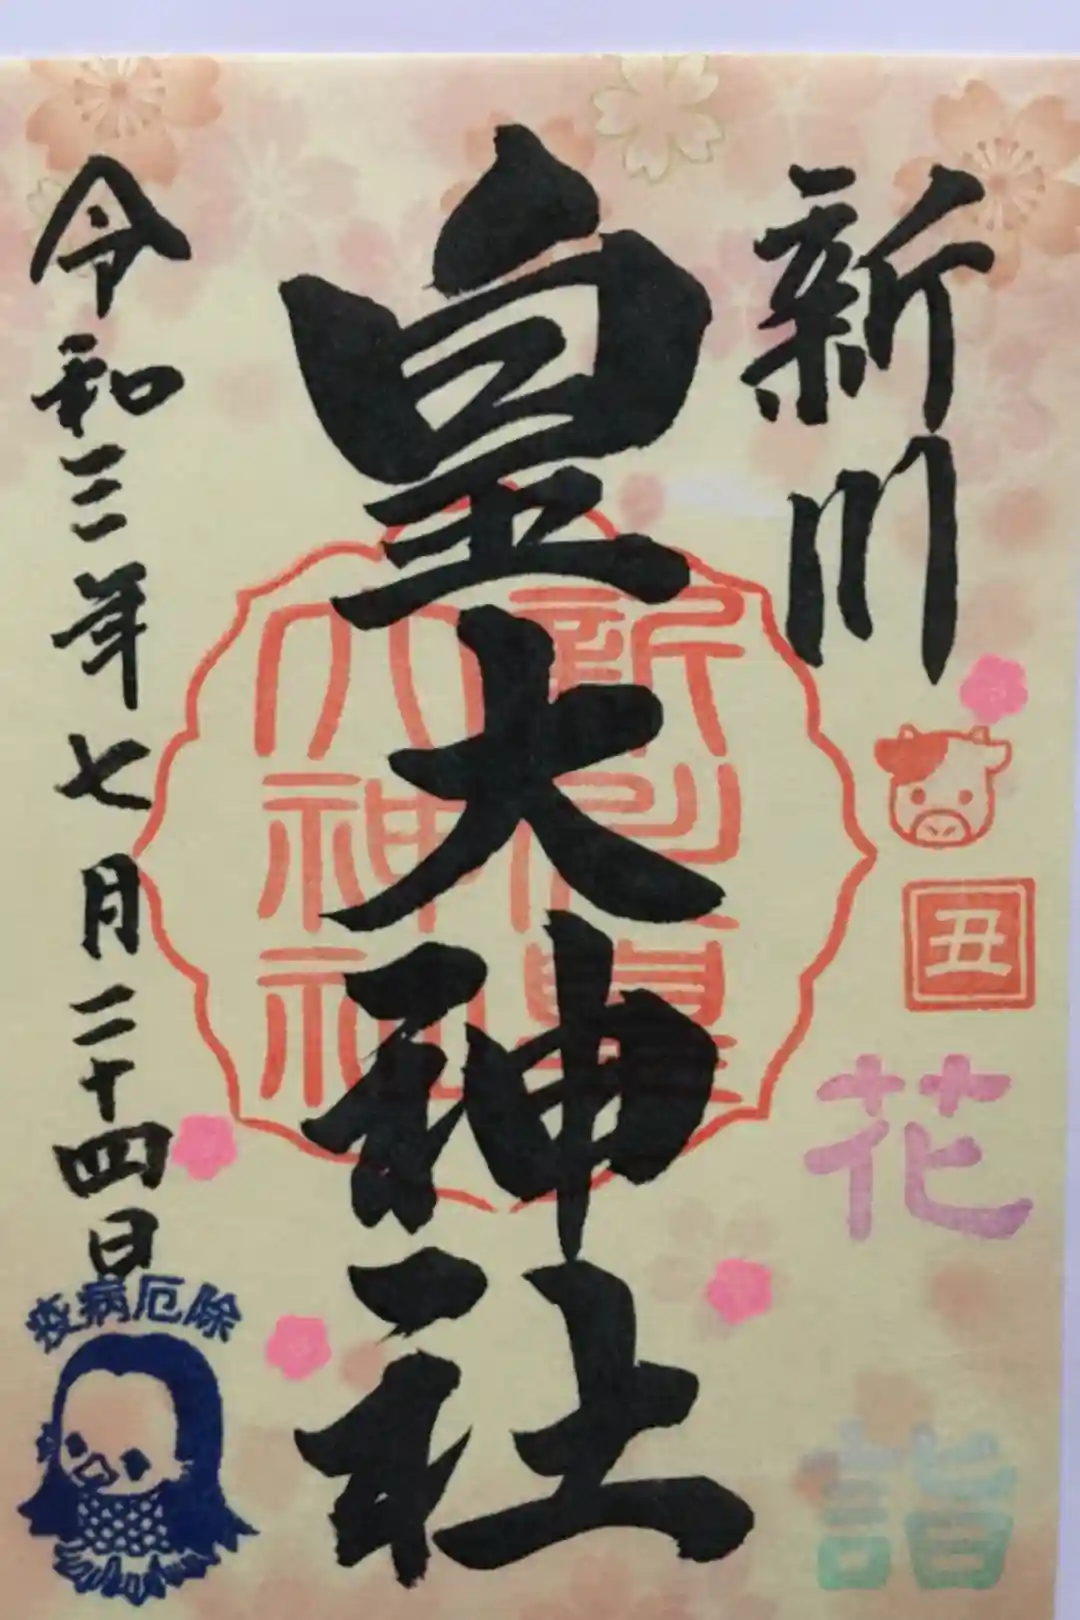 新川
丑
花
詣
皇大神社
新川皇
大神社
令和三年七月二十四日
疫病厄除